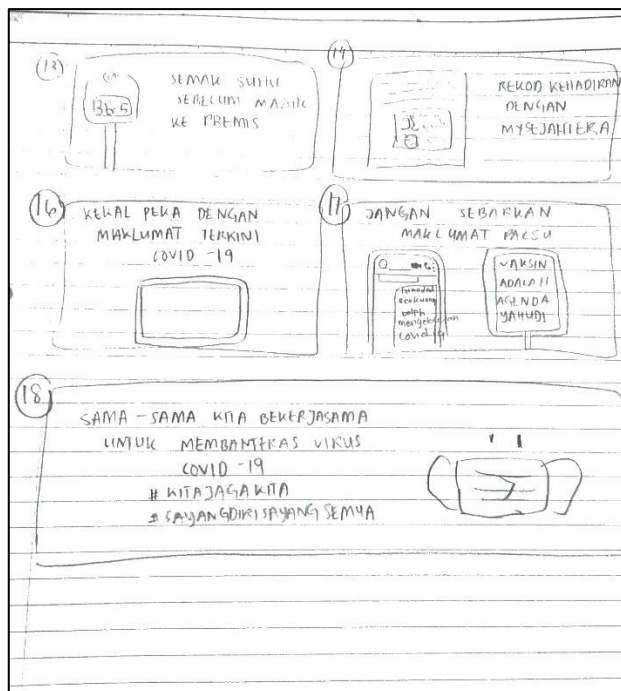 13
36.5
SEMAK SUHU
SEBELUM MASUK
KE PREMIS
14
REKOD KEHADIRAN
DENGAN
MYSEJAHTERA
16
KEKAL PEKA DENGAN
MAKLUMAT TERKINI
COVID -19
17
JANGAN SEBARKAN
MAKLUMAT PALSU
boleh
covid 19
VAKSIN
ADALAH
AGENDA
YAHUDI
18
SAMA - SAMA KITA BEKERJASAMA
UNTUK MEMBANTERAS VIRUS
COVID -19
# KITAJAGAKITA
# SAYANGDIRISAYANGSEMUA